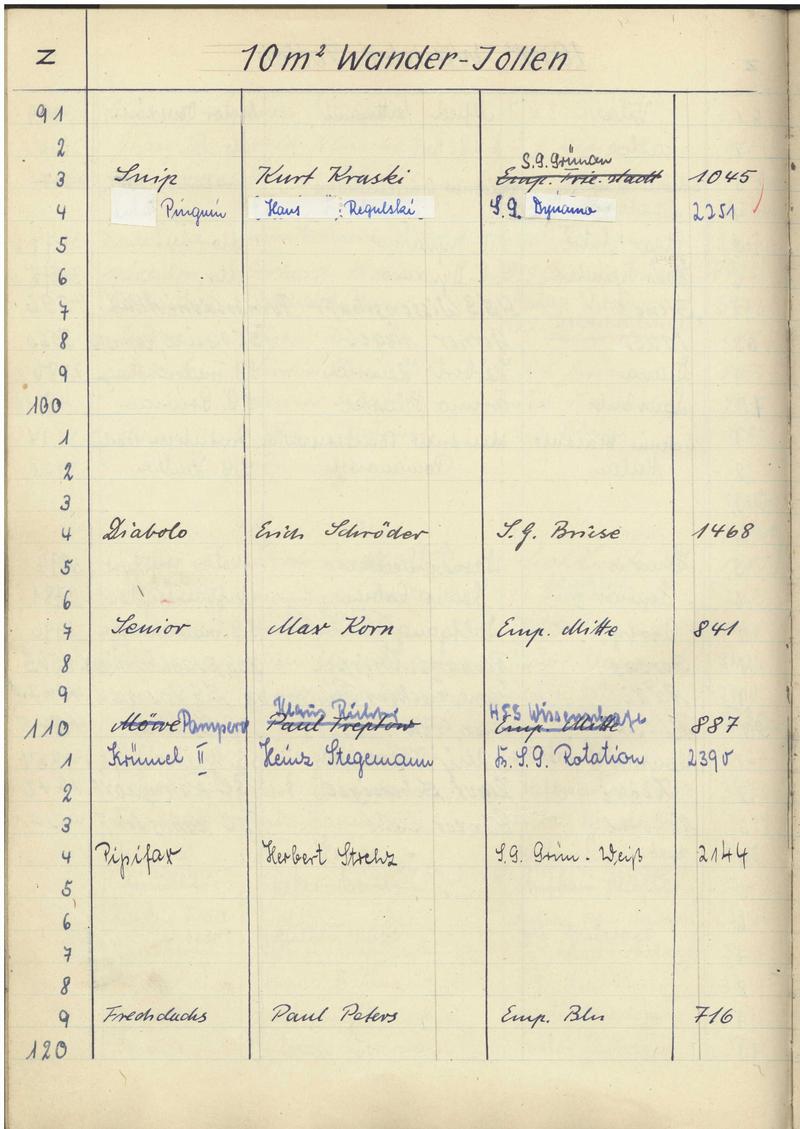 Z 10 m² Wander-Jollen
91
2
S.G. Grünau
3 Snip Kurt Kraski Emp. Frie.stadt 1045
4 Pinguin Hans Regulski S.G. Dynamo 2251
5
6
7
8
9
100
1
2
3
4 Diabolo Erich Schröder S.G. Briese 1468
5
6
7 Senior Max Korn Emp. Mitte 841
8
9
Klaus HSG Wissenschaft
110 Möwe Pampero Paul Treptow Emp. Mitte 887
1 Krümel II Heinz Stegemann B.S.G. Rotation 2390
2
3
4 Pipifax Herbert Strehz S.G. Grün-Weiß 2144
5
6
7
8
9 Frechdachs Paul Peters Emp. Bln 716
120